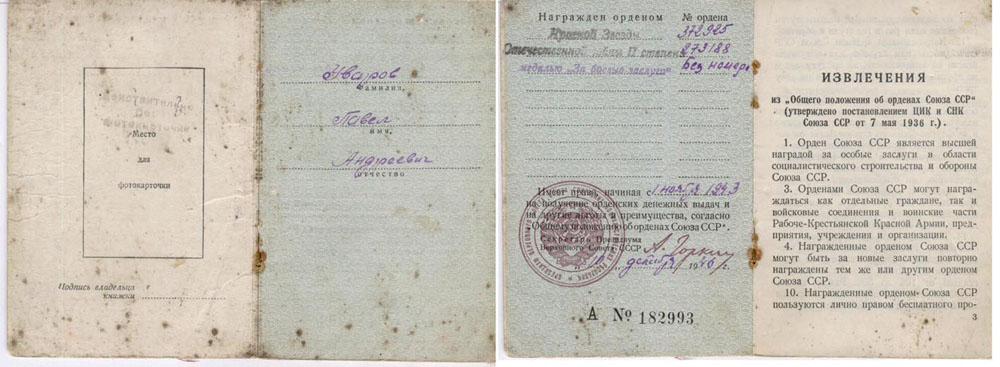 Место
для
фотокарточки
Подпись владельца
книжки
Уваров
фамилия
Павел
имя,
Андреевич
отчество
Награжден орденом № ордена
Красной Звезды 372925
Отечественной II степени 273188
медалью „За боевые заслуги“ Без номера
Имеет право, начиная с 1 1943
на получение орденских денежных выдач и
на другие льготы и преимущества, согласно
„Общему положению об орденах Союза ССР“.
Секретарь Президиума
Верховного Совета СССР А. Горкин
1946 г.
А № 182993
ИЗВЛЕЧЕНИЯ
из „Общего положения об орденах Союза ССР“
(утверждено постановлением ЦИК и СНК
Союза ССР от 7 мая 1936 г.).
1. Орден Союза ССР является высшей
наградой за особые заслуги в области
социалистического строительства и обороны
Союза ССР.
3. Орденами Союза ССР могут награ-
ждаться как отдельные граждане, так и
войсковые соединения и воинские части
Рабоче-Крестьянской Красной Армии, пред-
приятия, учреждения и организации.
4. Награжденные орденом Союза ССР
могут быть за новые заслуги повторно
награждены тем же или другим орденом
Союза ССР.
10. Награжденные орденом Союза ССР
пользуются лично правом бесплатного про-
3